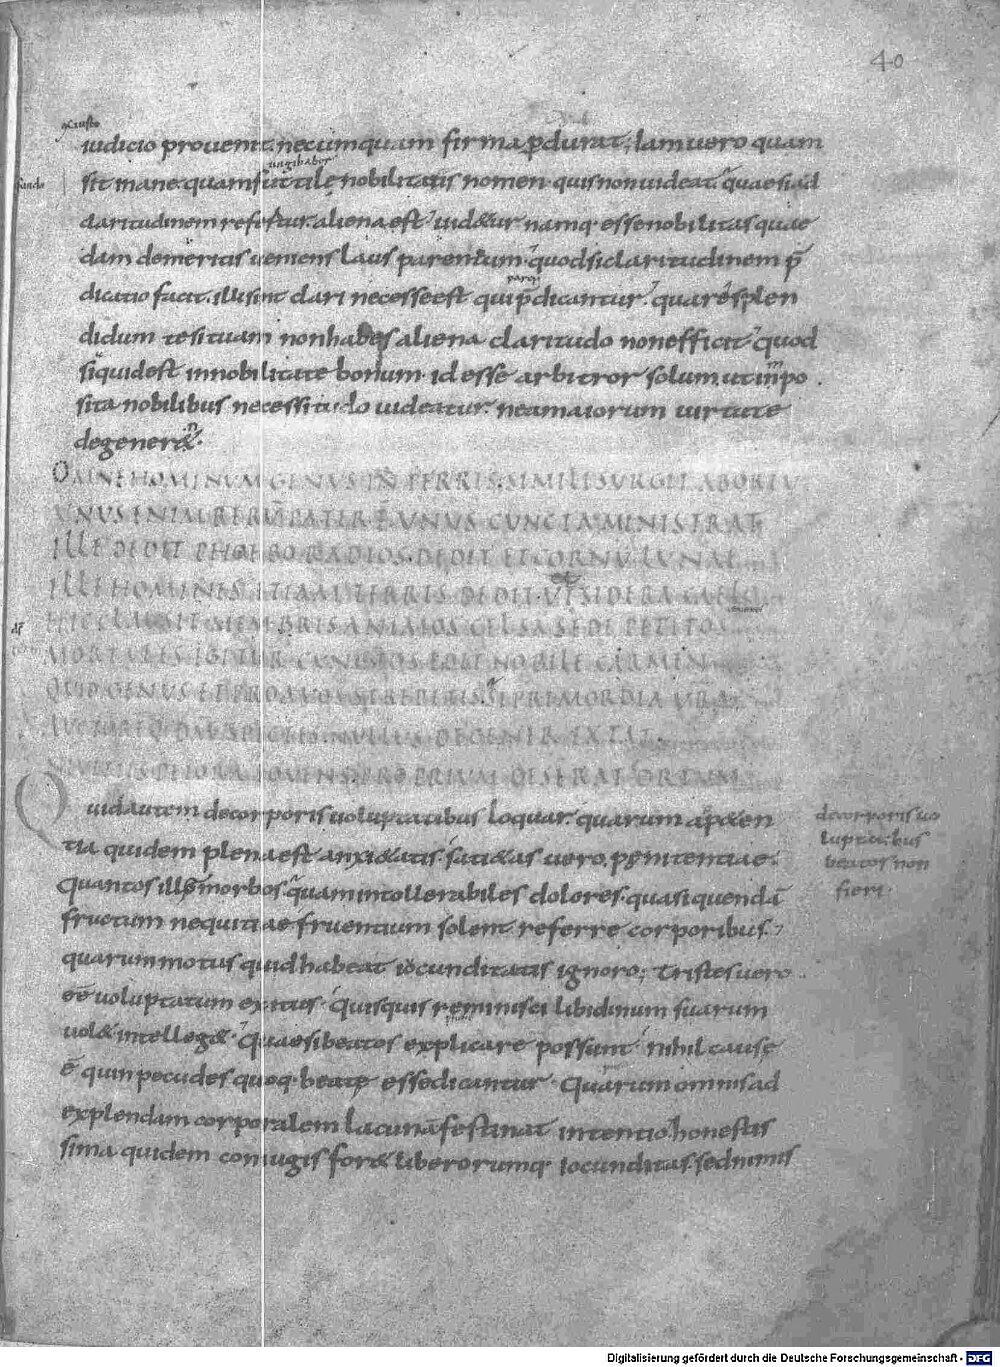 40
iudicio prouenit necumquam firma p̄durat; Iam uero quam
sit inane quam futtile nobilitatis nomen quis non uideat, quae si ad
claritudinem refertur aliena est, uid&ur namq· esse nobilitas quae
dam de meritis ueniens laus parentum, quod si claritudinem p̄
dicatio facit, illi sint clari necesse est qui p̄dicantur, quare splen
didum te si tuam non habes aliena claritudo non efficit, quod
si quid est in nobilitate bonum id esse arbitror solum, ut inpo
sita nobilibus necessitudo uideatur ne a maiorum uirtute
degener&·
OMNE HOMINUM GENUS IN TERRIS SIMILI SURGIT AB ORTU
UNUS ENIM RERŪ PATER Ē UNUS CUNCTA MINISTRAT
ILLE DEDIT PHOEBO RADIOS DEDIT ET CORNU LUNAE
ILLE HOMINES ETIAM TERRIS DEDIT UT SIDERA CAELO
HIC CLAUSIT MEMBRIS ANIMOS CELSA SEDE PETITOS
MORTALES IGITUR CUNCTOS EDIT NOBILE CARMEN
QUID GENUS ET PROAUOS STREPITIS SI PRIMORDIA URĀ
AUCTOREQ· DM̄ SPECTES NULLUS DEGENER EXTAT
NI UITIIS PEIORA FOUENS PROPRIUM DESERAT ORTUM
Quid autem de corporis uoluptatibus loquar, quarum ap&en
tia quidem plena est anxi&atis, sati&as uero, pęnitentiae·
Quantos illę morbos quam intollerabiles dolores quasi quendā
fructum nequitiae fruentium solent referre corporibus,
quarum motus quid habeat iocunditatis ignoro; Tristes uero
eē uoluptatum exitus, quisquis reminisci libidinum suarum
uol& intelleg&, quae si beatos explicare possunt nihil causę
ē quin pecudes quoq· beatę esse dicantur· Quarum omnis ad
explendam corporalem lacunā festinat intentio, honestis
sima quidem coniugis for& liberorumq· iocunditas, sed nimis
de corporis uo
luptatibus
beatos non
fieri·
Digitalisierung gefördert durch die Deutsche Forschungsgemeinschaft - DFG